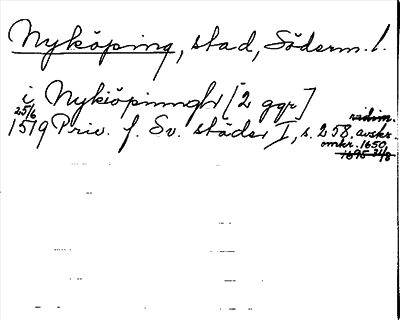 Nyköping, stad, Söderm. l.
i Nykiöpinngh [2 ggr]
25/6 vidim.
1519 Priv. f. Sv. städer I, s. 258. avskr.
omkr. 1650,
1695 31/8